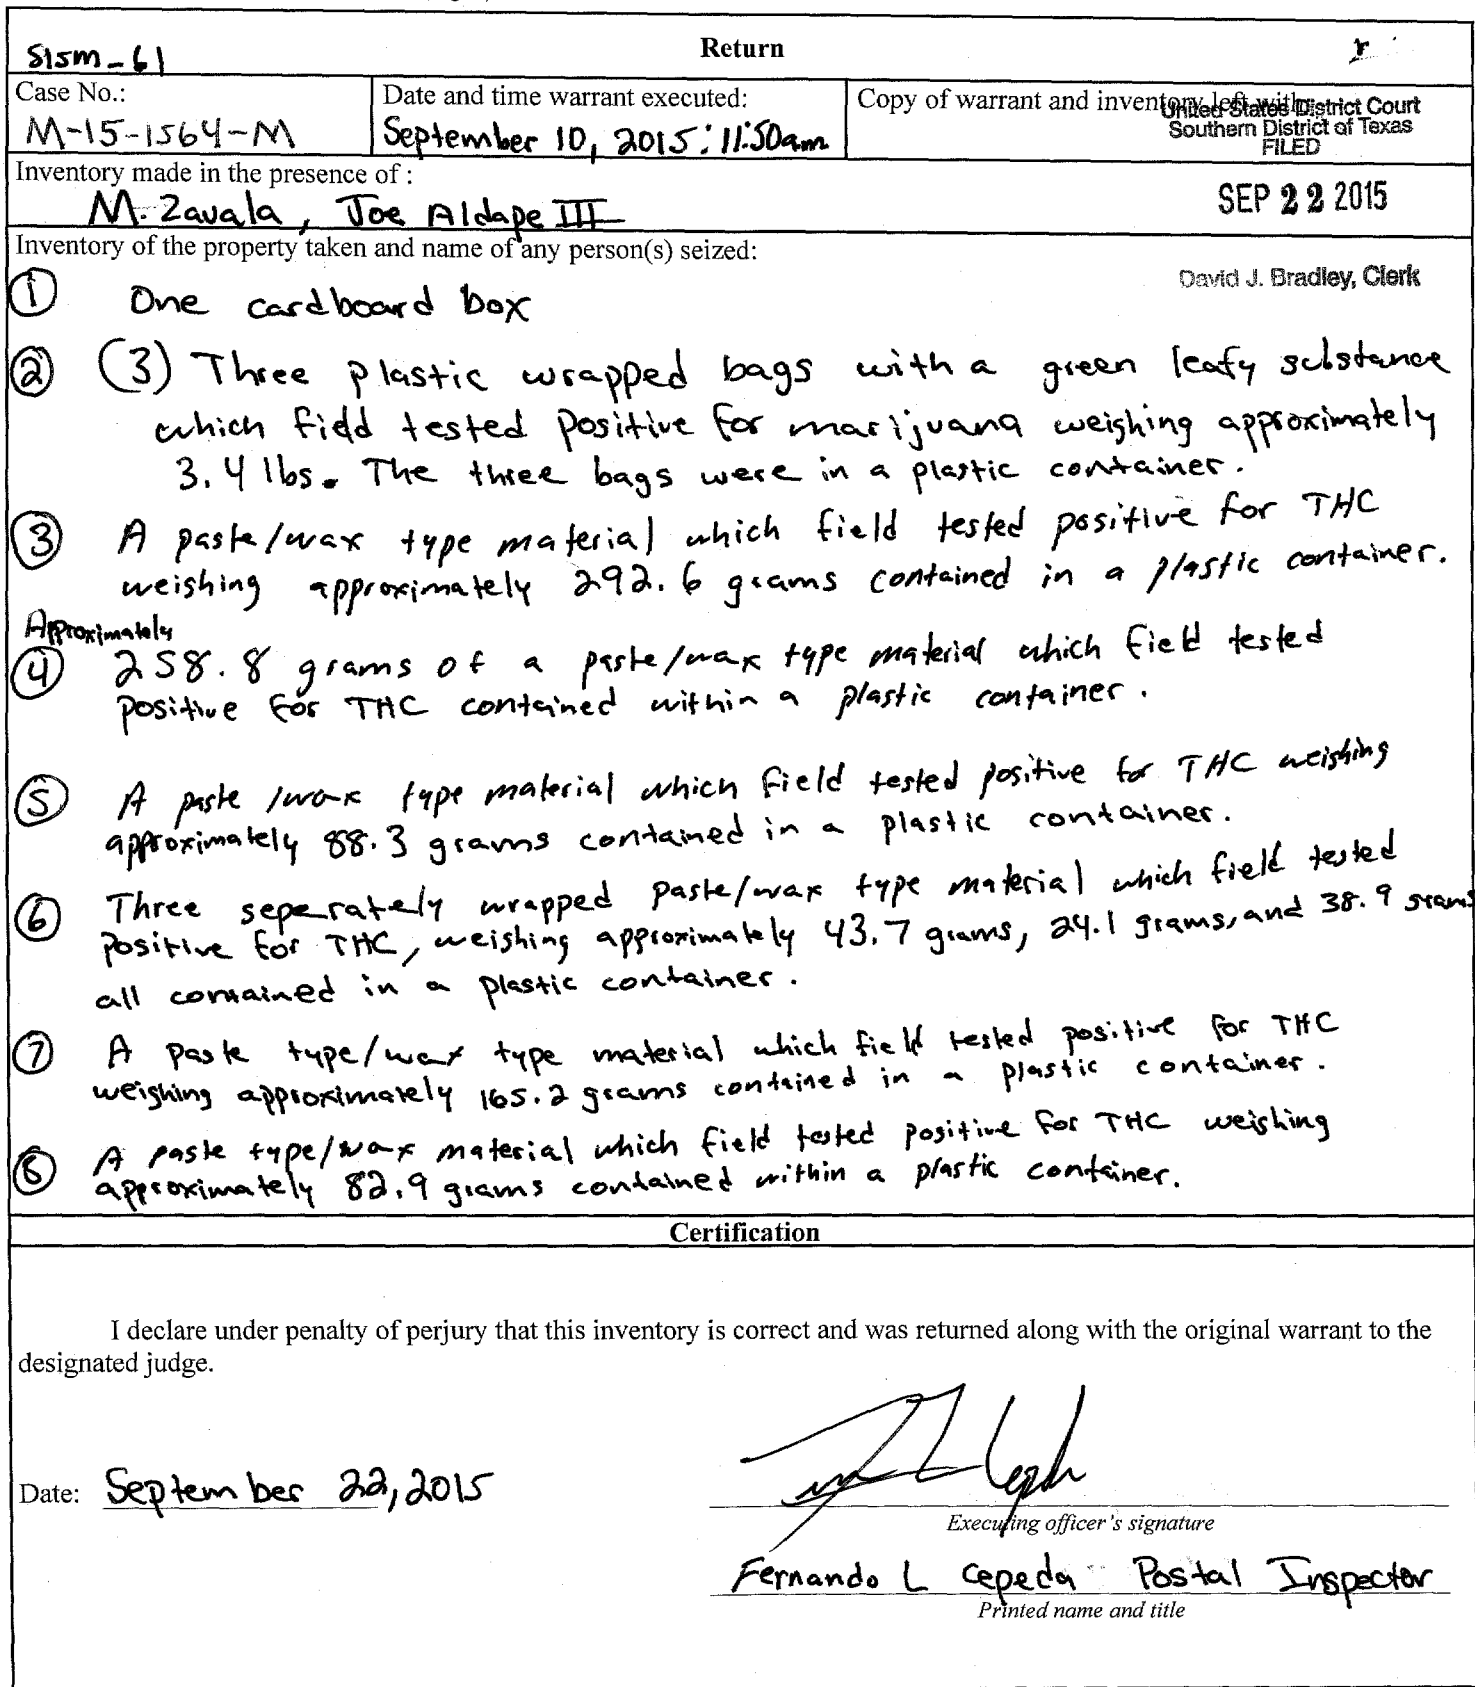 S15m-61
Return
Case No.:
M-15-1564-M
Date and time warrant executed:
September 10, 2015; 11:50am
Copy of warrant and inventory left with:
United States District Court
Southern District of Texas
FILED
SEP 22 2015
David J. Bradley, Clerk
Inventory made in the presence of :
M. Zavala, Joe Aldape III
Inventory of the property taken and name of any person(s) seized:
① One cardboard box
② (3) Three plastic wrapped bags with a green leafy substance
which field tested positive for marijuana weighing approximately
3.4 lbs. The three bags were in a plastic container.
③ A paste/wax type material which field tested positive for THC
weishing approximately 292.6 grams contained in a plastic container.
Approximately
④ 258.8 grams of a paste/wax type material which field tested
positive for THC contained within a plastic container.
⑤ A paste/wax type material which field tested positive for THC weishing
approximately 88.3 grams contained in a plastic container.
⑥ Three seperately wrapped paste/wax type material which field tested
positive for THC, weishing approximately 43.7 grams, 24.1 grams, and 38.9 grams
all contained in a plastic container.
⑦ A paste type/wax type material which field tested positive for THC
weighing approximately 165.2 grams contained in a plastic container.
⑧ A paste type/wax material which field tested positive for THC weishing
approximately 82.9 grams contained within a plastic container.
Certification
I declare under penalty of perjury that this inventory is correct and was returned along with the original warrant to the
designated judge.
Date: September 22, 2015
Executing officer's signature
Fernando L Cepeda Postal Inspector
Printed name and title